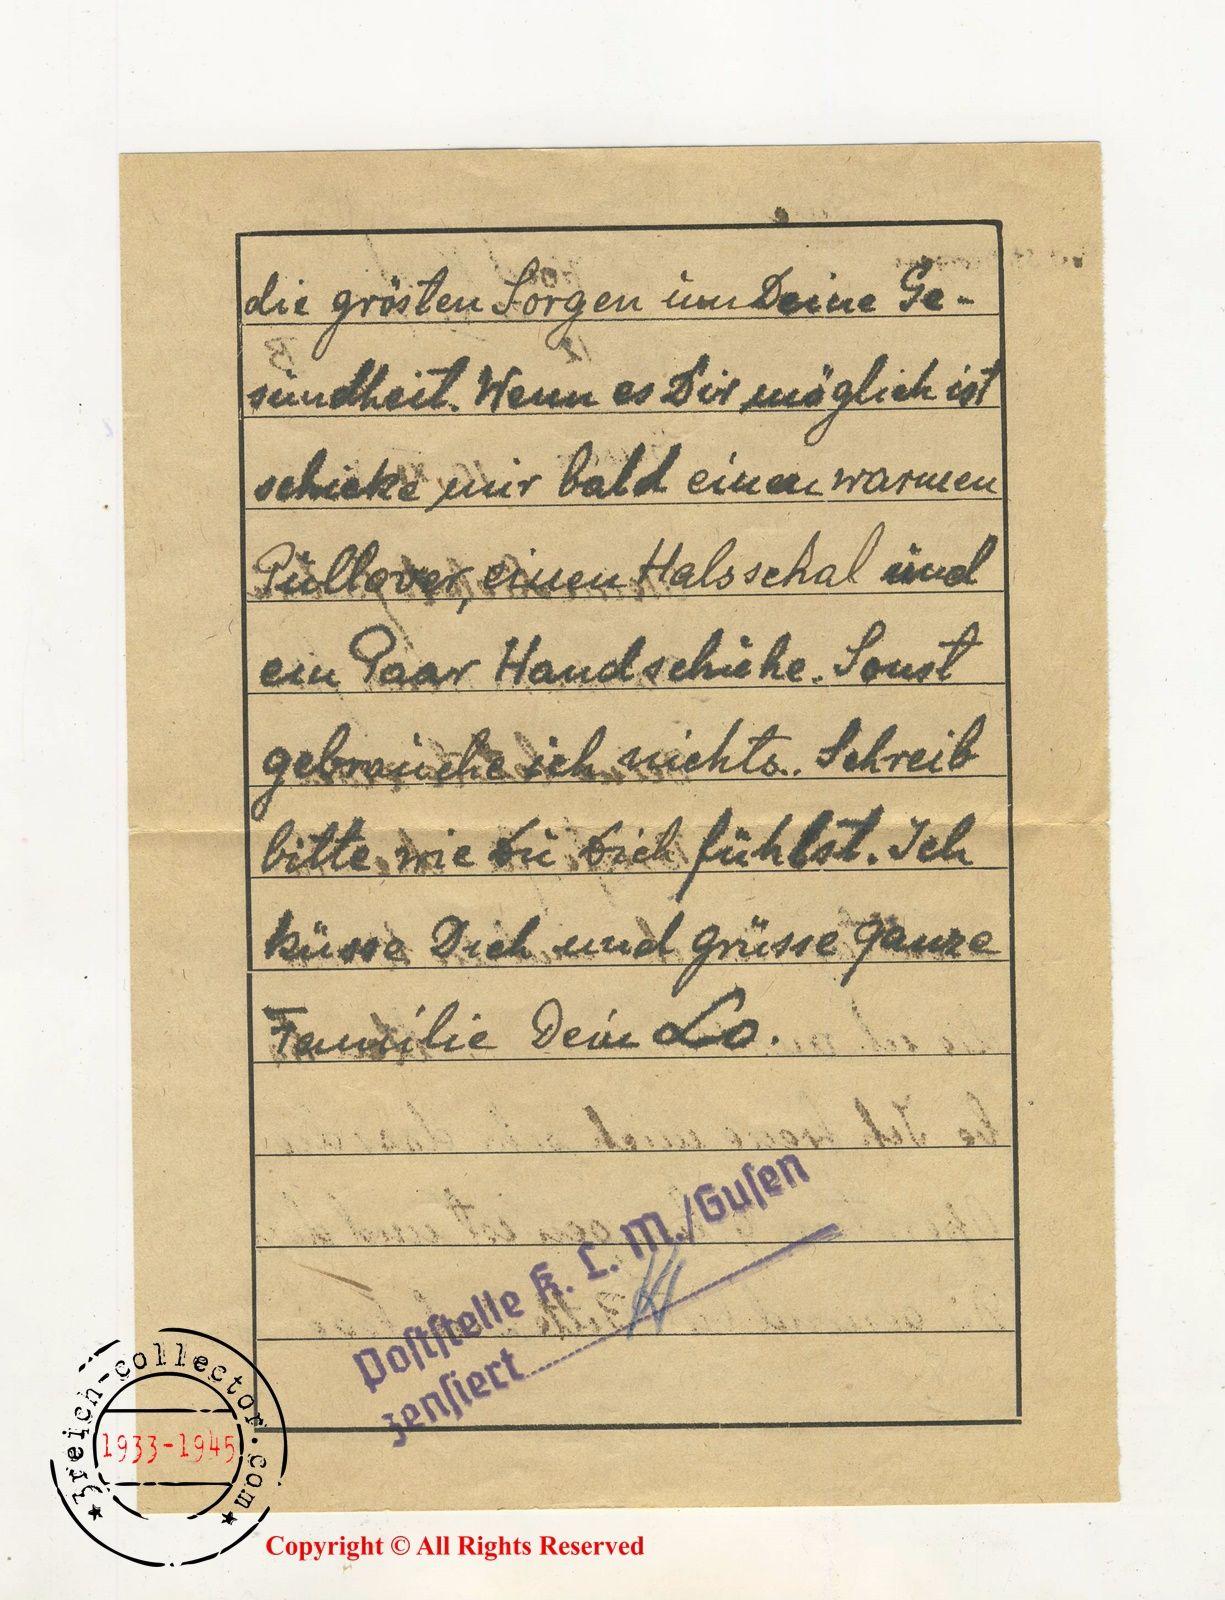 die grösten Sorgen um Deine Ge-
sundheit. Wenn es Dir möglich ist
schicke mir bald einen warmen
Pullover, einen Halsschal und
ein Paar Handschuhe. Sonst
gebrauche ich nichts. Schreib
bitte wie Du Dich fühlst. Ich
küsse Dich und grüsse ganze
Familie Dein Lo.
Poststelle K. L. M./Gusen
zensiert
3reich-collector.com
1933-1945
Copyright © All Rights Reserved